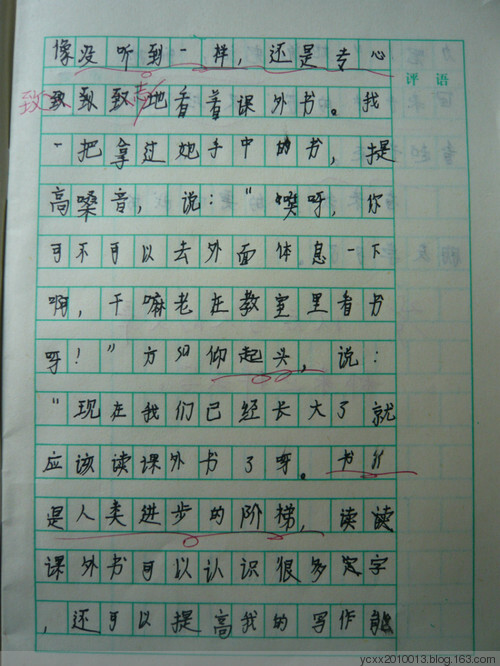 像没听到一样，还是专心
评语
致致致志地看着课外书。我
一把拿过她手中的书，提
高嗓音，说：“唉呀，你
可不可以去外面休息一下
啊，干嘛老在教室里看书
呀！”方如仰起头，说：
“现在我们已经长大了就
应该读课外书了呀。书介
是人类进步的阶梯，读读
课外书可以认识很多字
，还可以提高我的写作能
ycxx2010013.blog.163.com